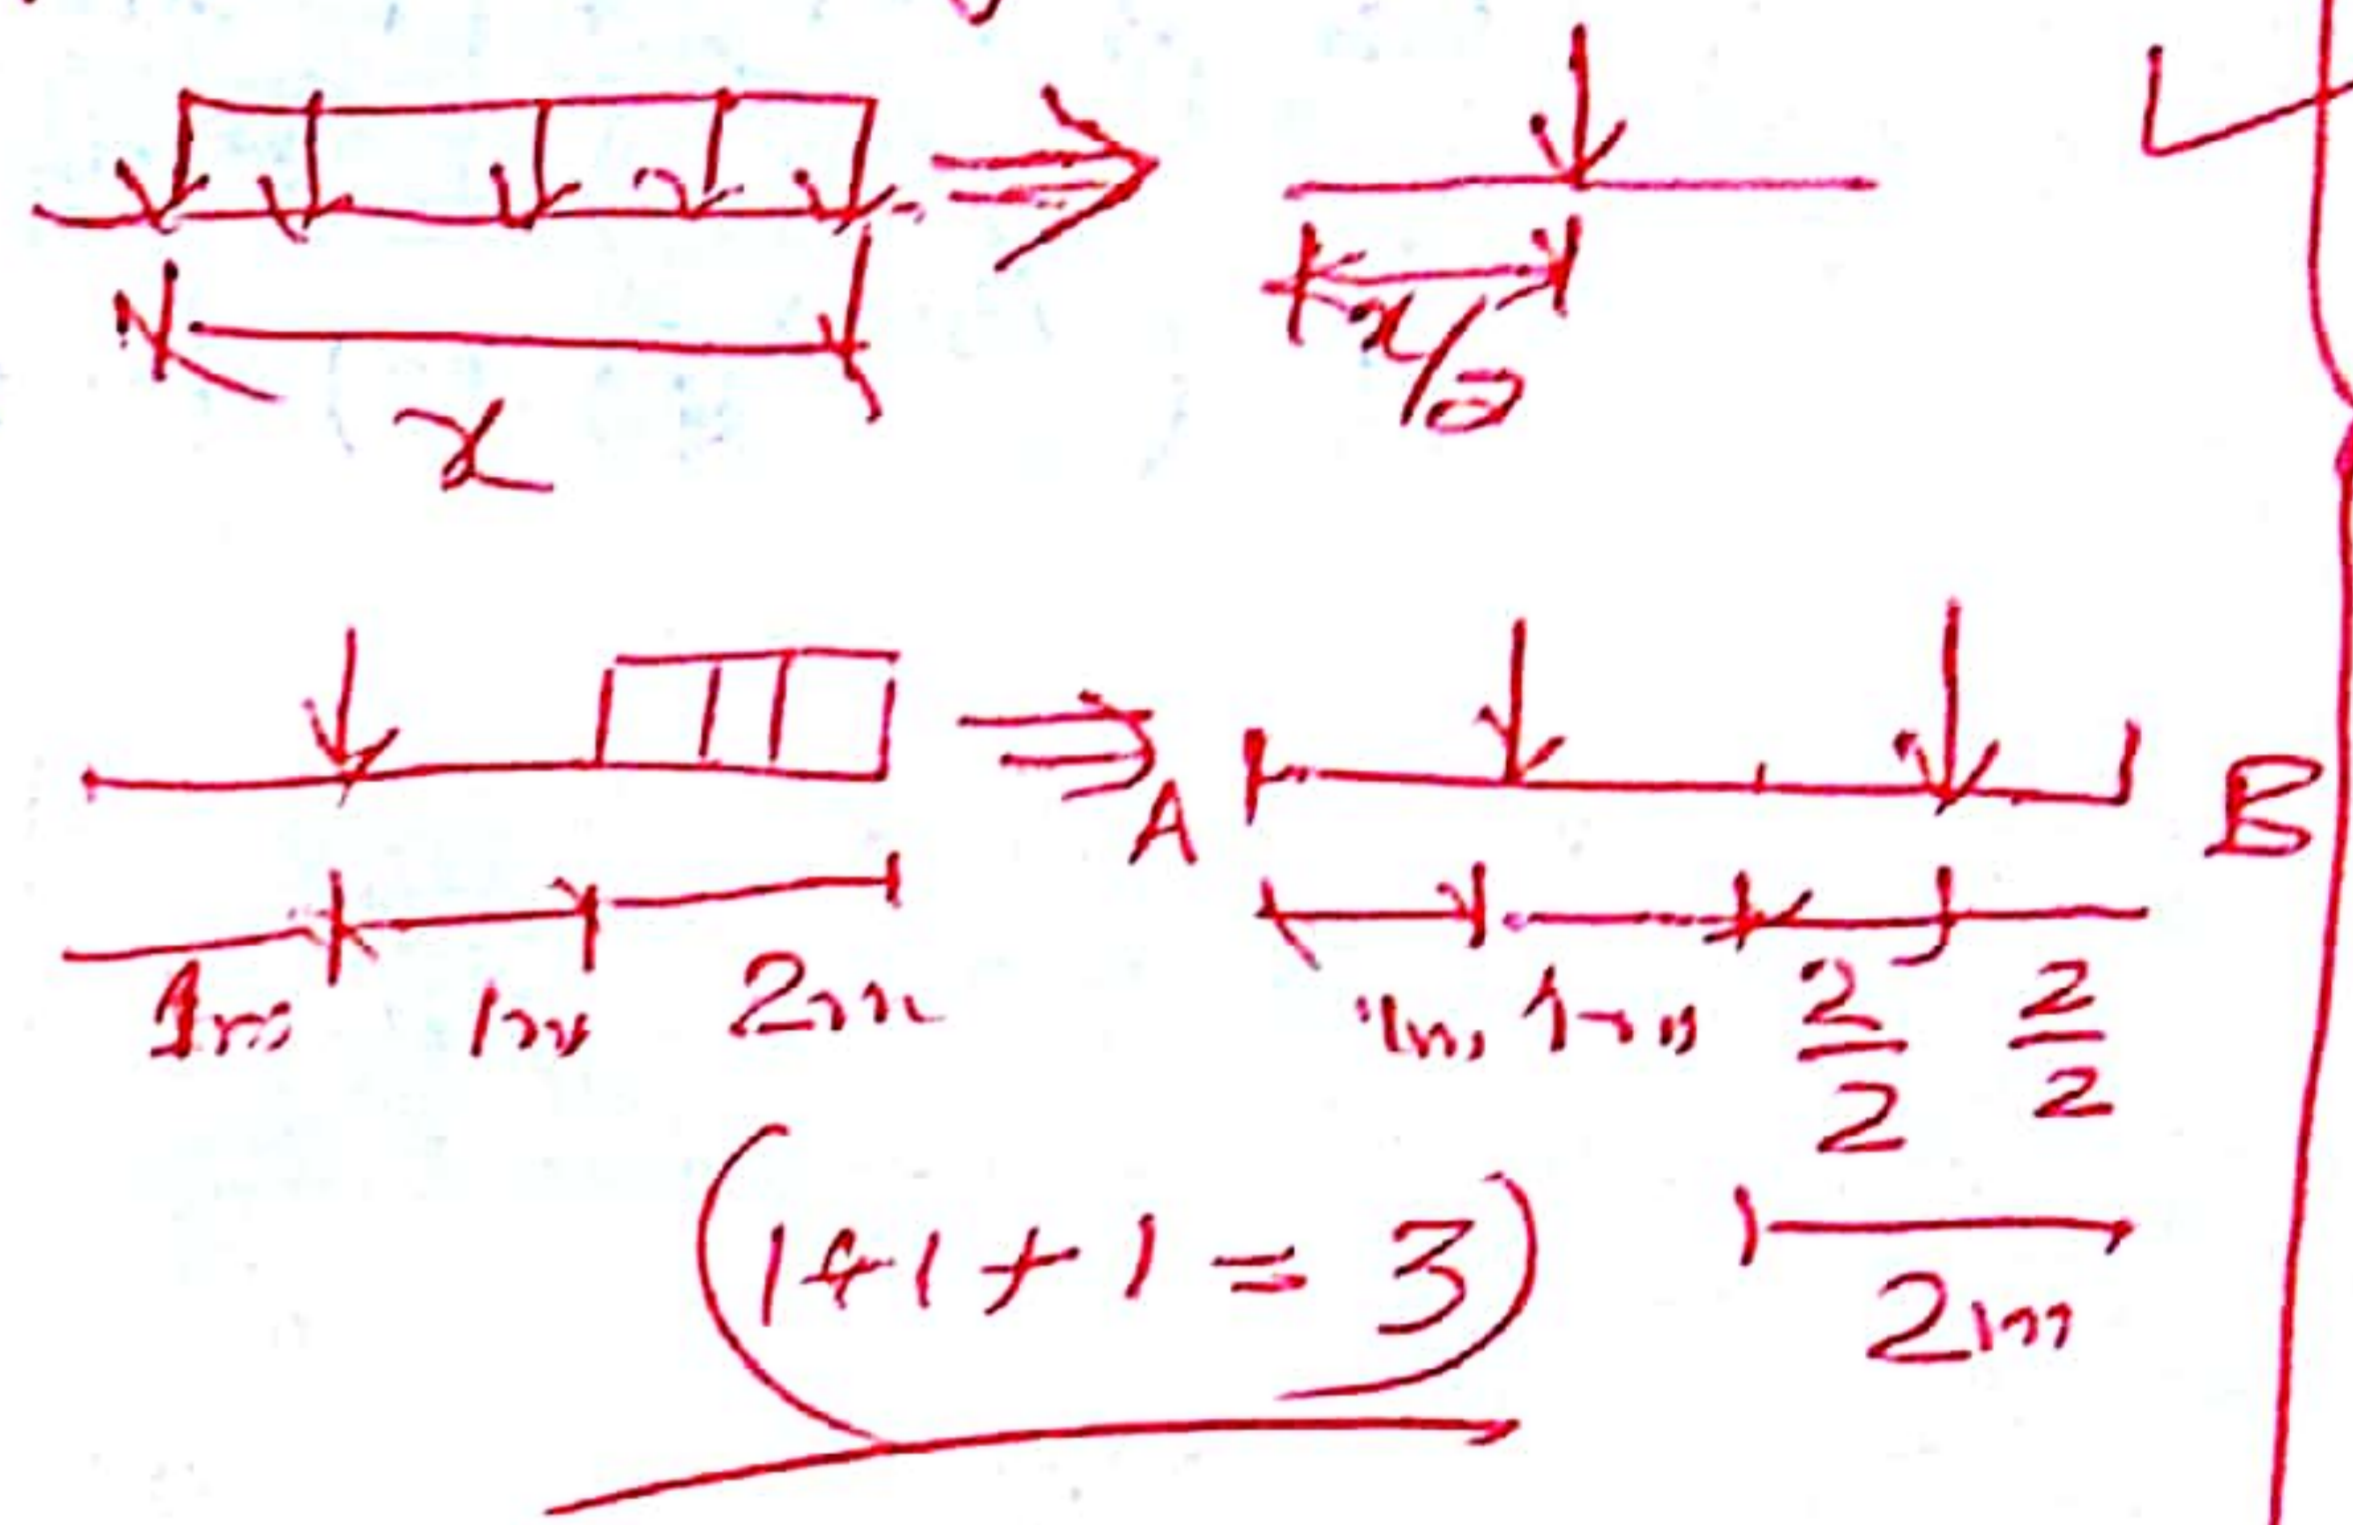 x
x/2
A
B
1m 1m 2m
1m 1m 2/2 2/2
(1+1+1 = 3)
2m